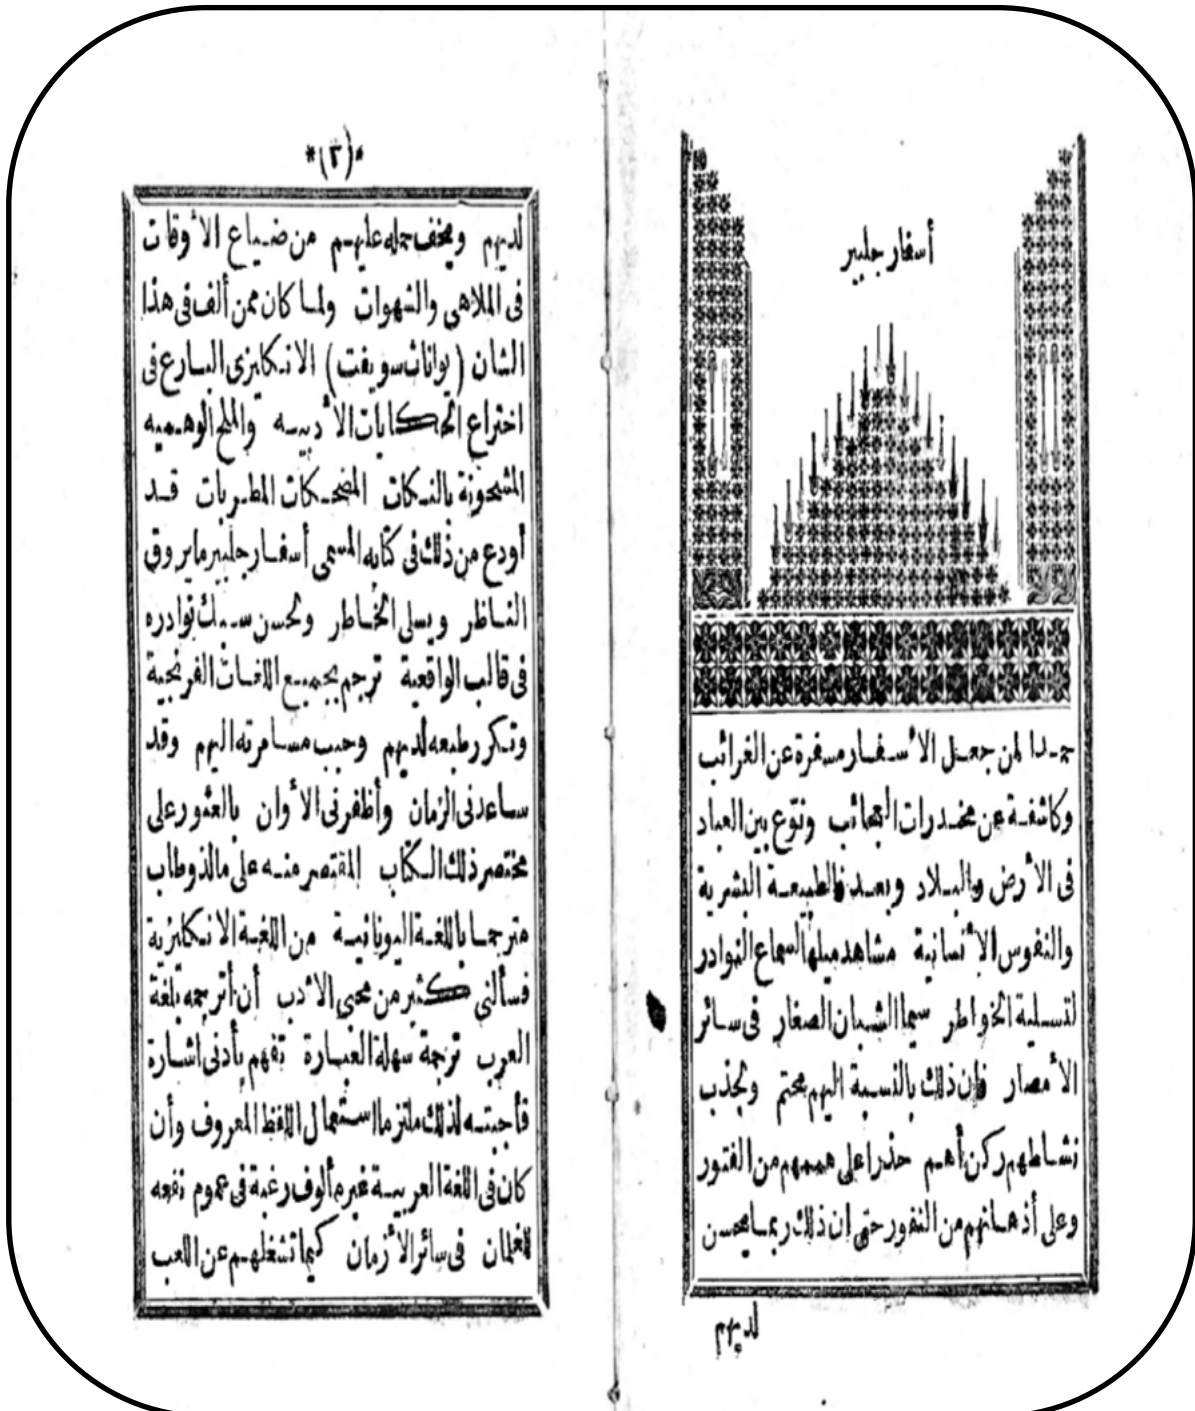 أسفار جليير
حمدا لمن جعل الأسفار مسفرة عن الغرائب
وكاشفة عن مخدرات العجائب ونوّع بين العباد
فى الأرض والبلاد وبعد فالطبيعة البشرية
والنفوس الأنسانية مشاهد ميلها لسماع النوادر
لتسلية الخواطر سيما الشبان الصغار فى سائر
الأمصار فان ذلك بالنسبة اليهم محتم ولجذب
نشاطهم ركن أهم حذرا على هممهم من الفتور
وعلى أذهانهم من النفور حتى ان ذلك ربما يحسن
لديهم
*(٣)*
لديهم ويخفف حمله عليهم من ضياع الأوقات
فى الملاهى والشهوات ولما كان ممن ألف فى هذا
الشان (يوناثا سويفت) الانكليزى البارع فى
اختراع الحكايات الأدبيه والملح الوهميه
المشحونة بالنكات المضحكات المطربات قد
أودع من ذلك فى كتابه المسمى أسفار جليير ما يروق
الناظر ويسلى الخاطر ولحسن سبك نوادره
فى قالب الواقعية ترجم بجميع اللغات الفرنجية
وتكرر طبعه لديهم وحبب مسامرته اليهم وقد
ساعدنى الزمان وأظفرنى الأوان بالعثور على
مختصر ذلك الكتاب المقتصر منه على مالذ وطاب
مترجما باللغة اليونانية من اللغة الانكليزية
فسألنى كثير من محبى الأدب أن أترجمه بلغة
العرب ترجمة سهلة العبارة تفهم بأدنى اشارة
فأجبته لذلك ملتزما استعمال اللفظ المعروف وأن
كان فى اللغة العربية غير مألوف رغبة فى عموم نفعه
للغلمان فى سائر الأزمان كيما تشغلهم عن اللعب